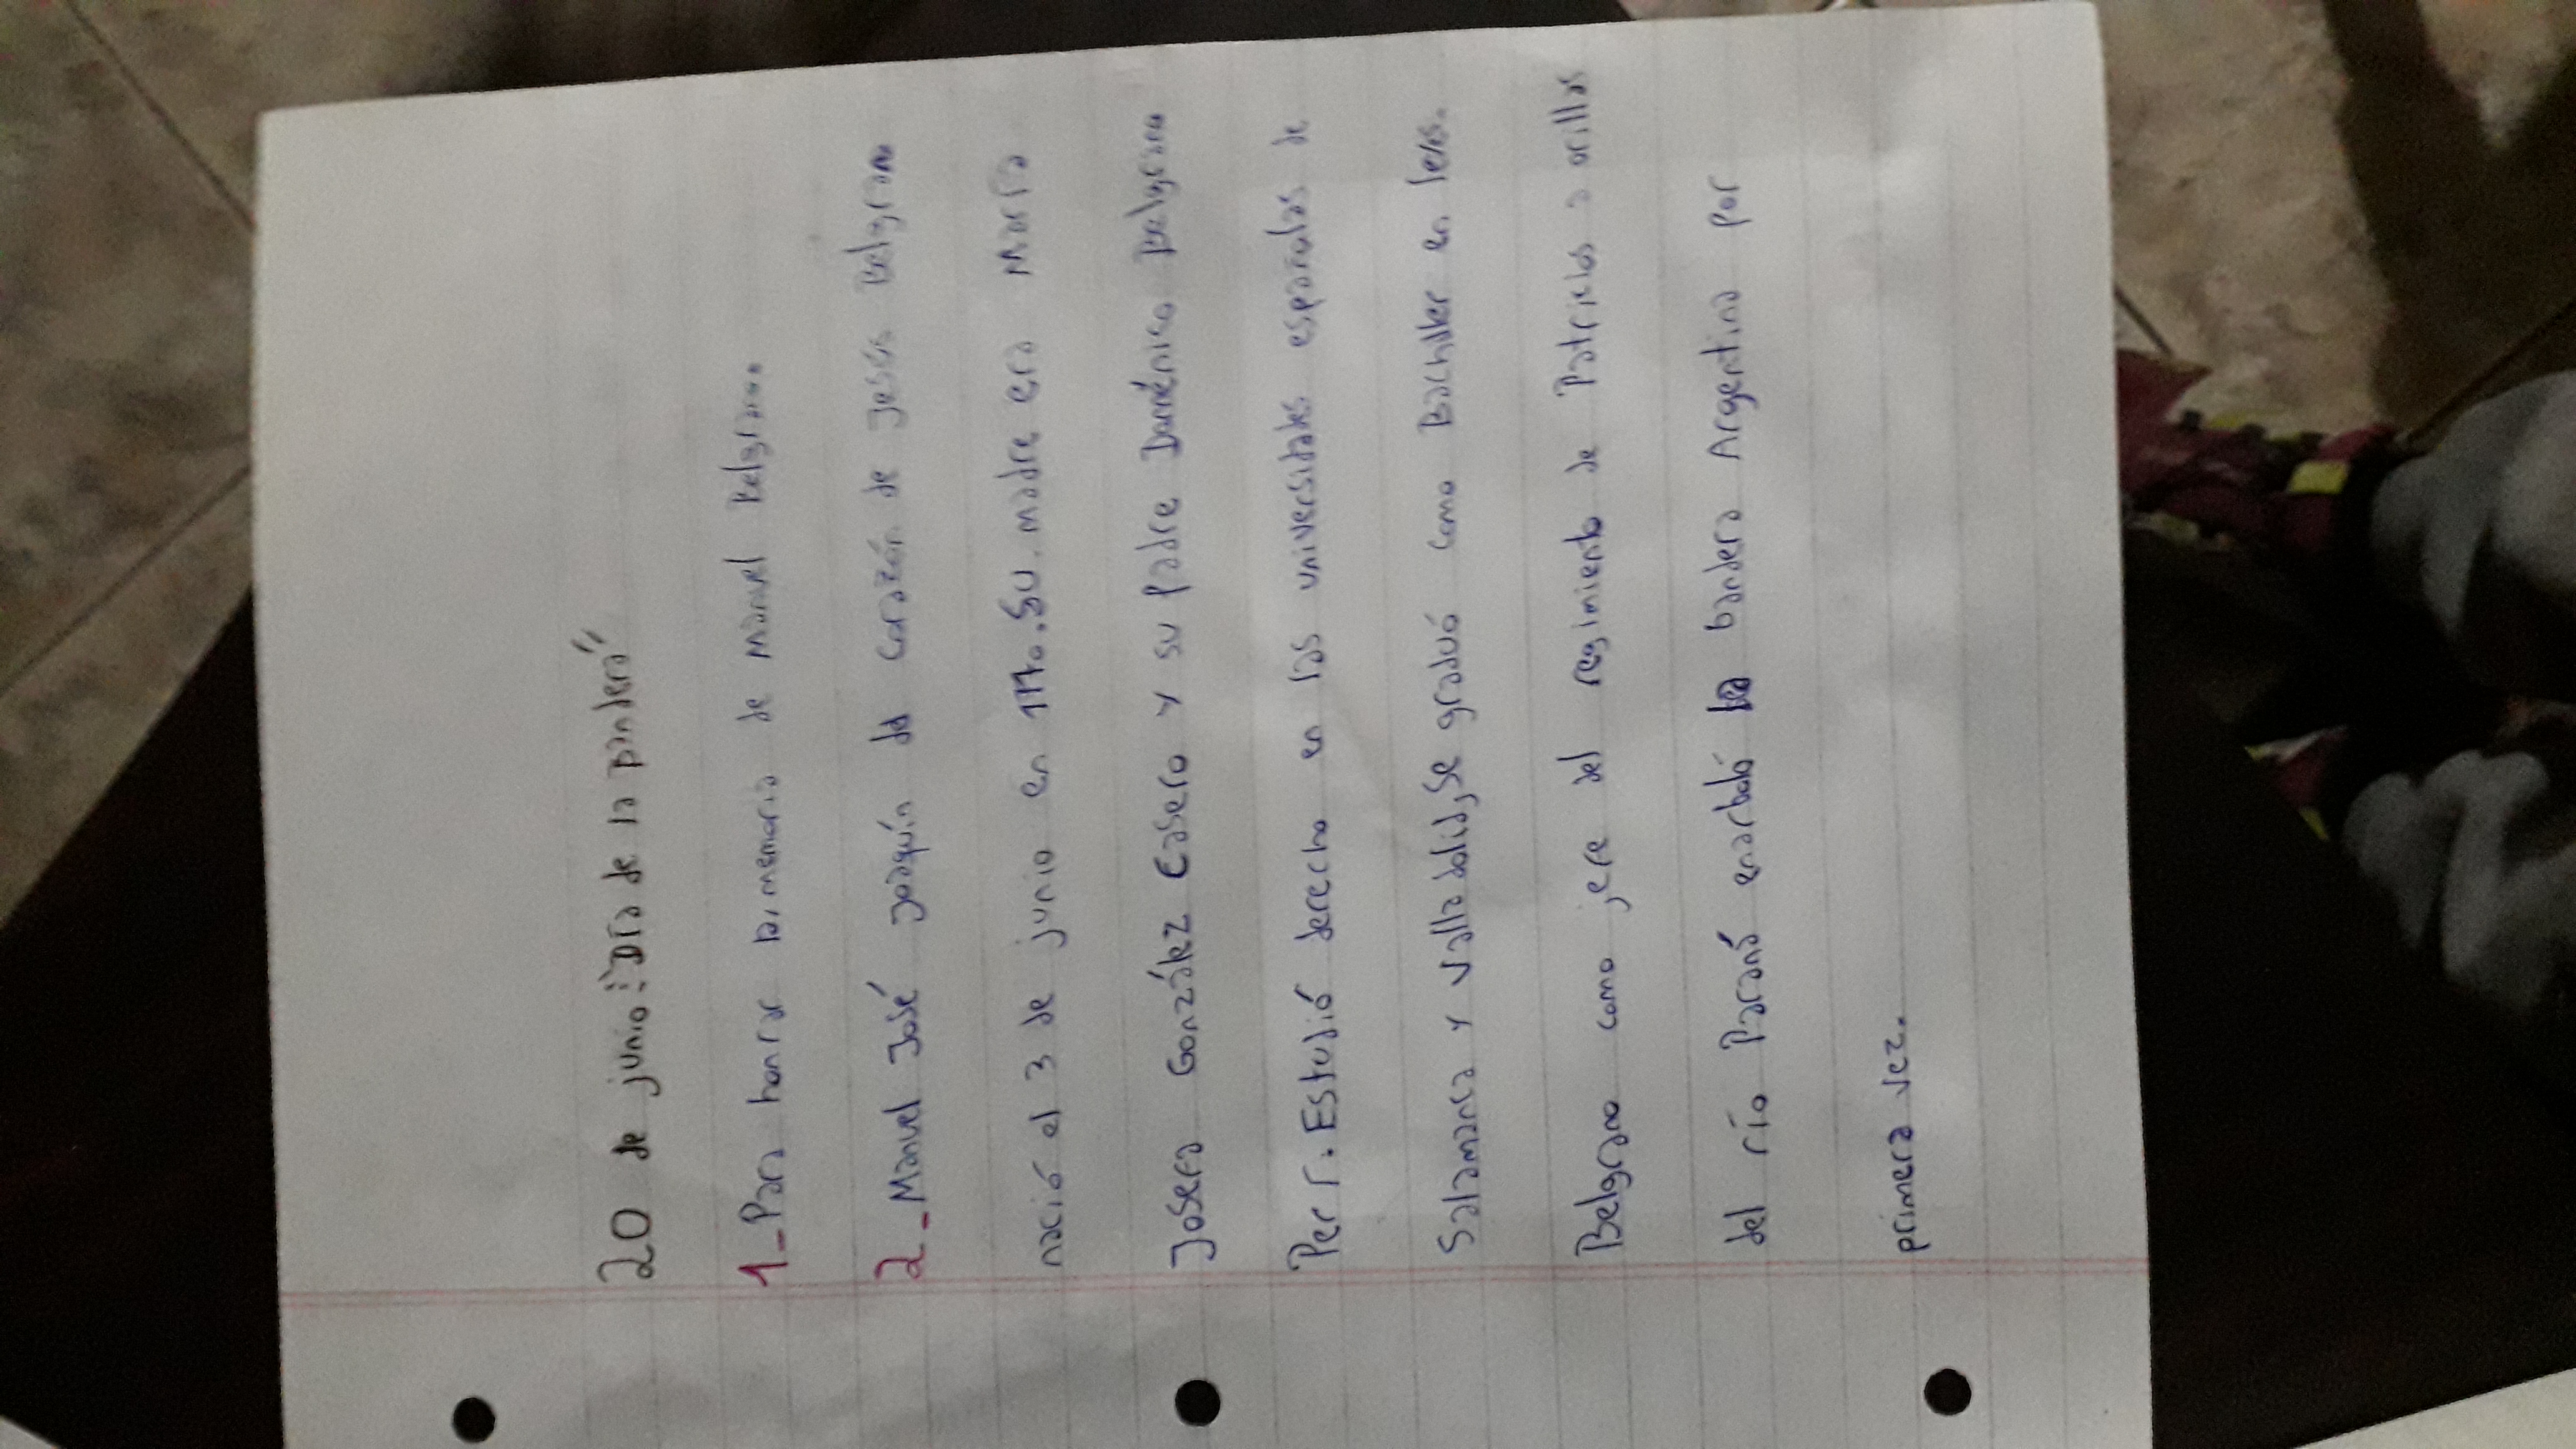 20 de junio: "Día de la bandera"
1_Para honrar la memoria de Manuel Belgrano.
2_Manuel José Joaquín del Corazón de Jesús Belgrano
nació el 3 de junio en 1770. Su madre era María
Josefa González Casero y su padre Doménico Belgrano
Perr. Estudió derecho en las universidades españolas de
Salamanca y Valladolid, se graduó como Bachiller en leyes.
Belgrano como jefe del regimiento de Patricios a orillas
del río Paraná enarboló la bandera Argentina por
primera vez.